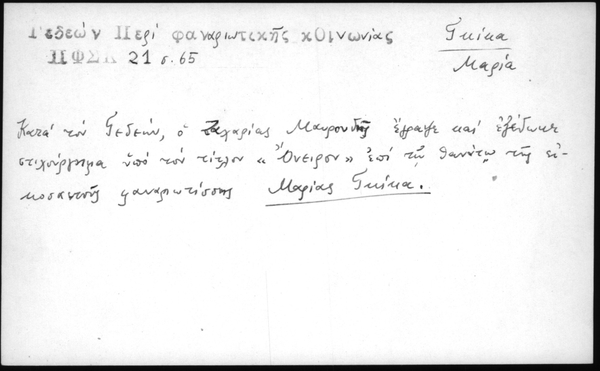 Γεδεών Περί φαναριωτικῆς κΟινωνίας
Γκίκα
ΠΦΣΚ 21 σ. 65
Μαρία
Κατά τόν Γεδεών, ὁ Ζαχαρίας Μαυρουδῆς ἔγραψε καί ἐξέδωκε
στιχούργημα ὑπό τόν τίτλον «Ὄνειρον» ἐπί τῷ θανάτῳ τῆς εἰ-
κοσαετοῦς φαναριωτίσσης Μαρίας Γκίκα.